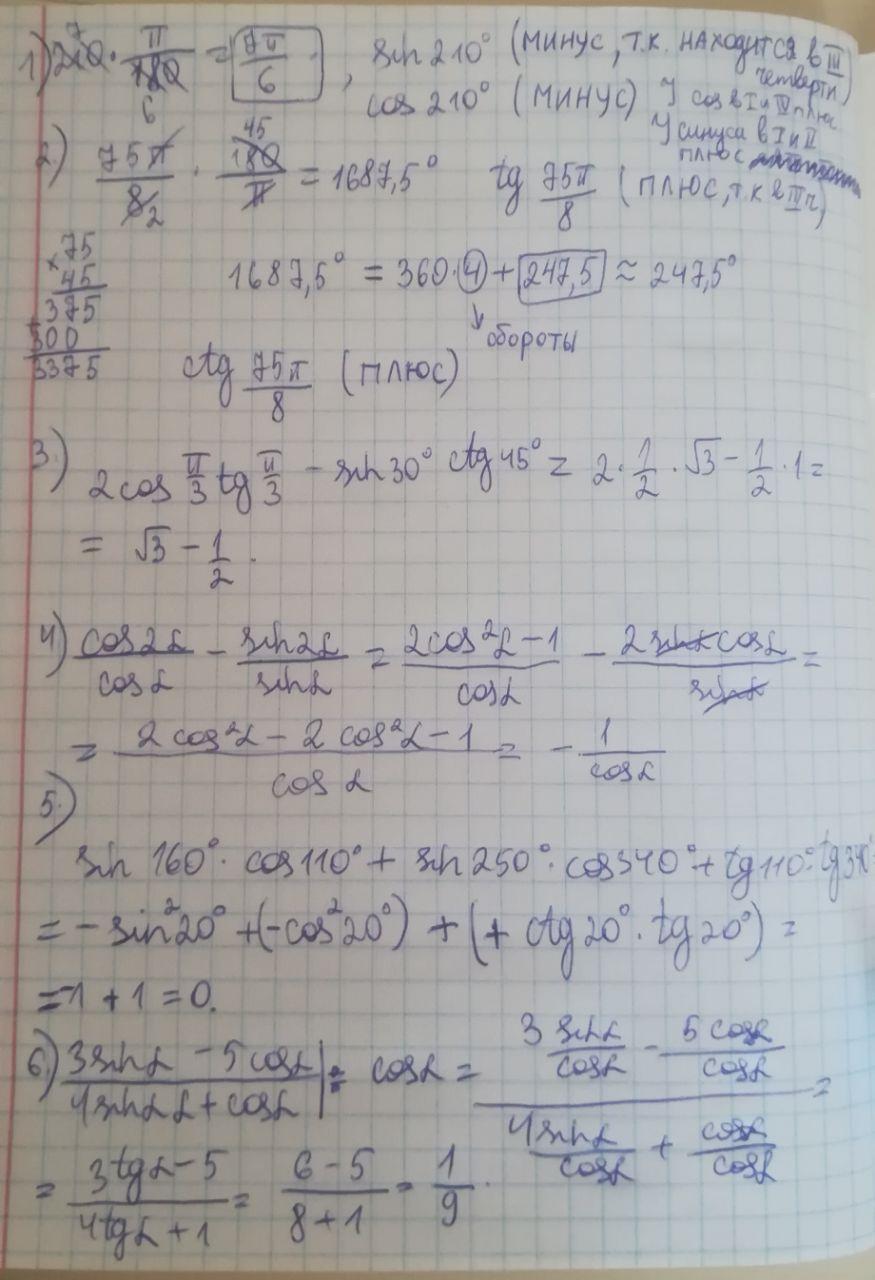 1) 210 · π/180 = 7π/6 , sin 210° (минус, т.к. находится в III четверти)
7
6
cos 210° (минус) У cos в I и IV плюс
У синуса в I и II плюс
2) 75π/8 · 180/π = 1687,5° tg 75π/8 (плюс, т.к в III ч)
45
2
×75
45
375
300
3375
1687,5° = 360·4 + 247,5 ≈ 247,5°
обороты
ctg 75π/8 (плюс)
3.) 2cos π/3 tg π/3 - sin 30° ctg 45° = 2·1/2·√3 - 1/2·1 =
= √3 - 1/2.
4) cos2α/cosα - sin2α/sinα = (2cos²α - 1)/cosα - 2sinα cosα/sinα =
= (2cos²α - 2cos²α - 1)/cosα = - 1/cosα
5.)
sin 160°· cos 110° + sin 250°· cos 340° + tg 110°· tg 340°
= - sin²20° + (-cos²20°) + (+ ctg 20°· tg 20°) =
= -1 + 1 = 0.
6.) (3sinα - 5cosα)/(4sinα + cosα) |: cosα = (3 sinα/cosα - 5cosα/cosα)/(4sinα/cosα + cosα/cosα) =
= (3tgα - 5)/(4tgα + 1) = (6 - 5)/(8 + 1) = 1/9.